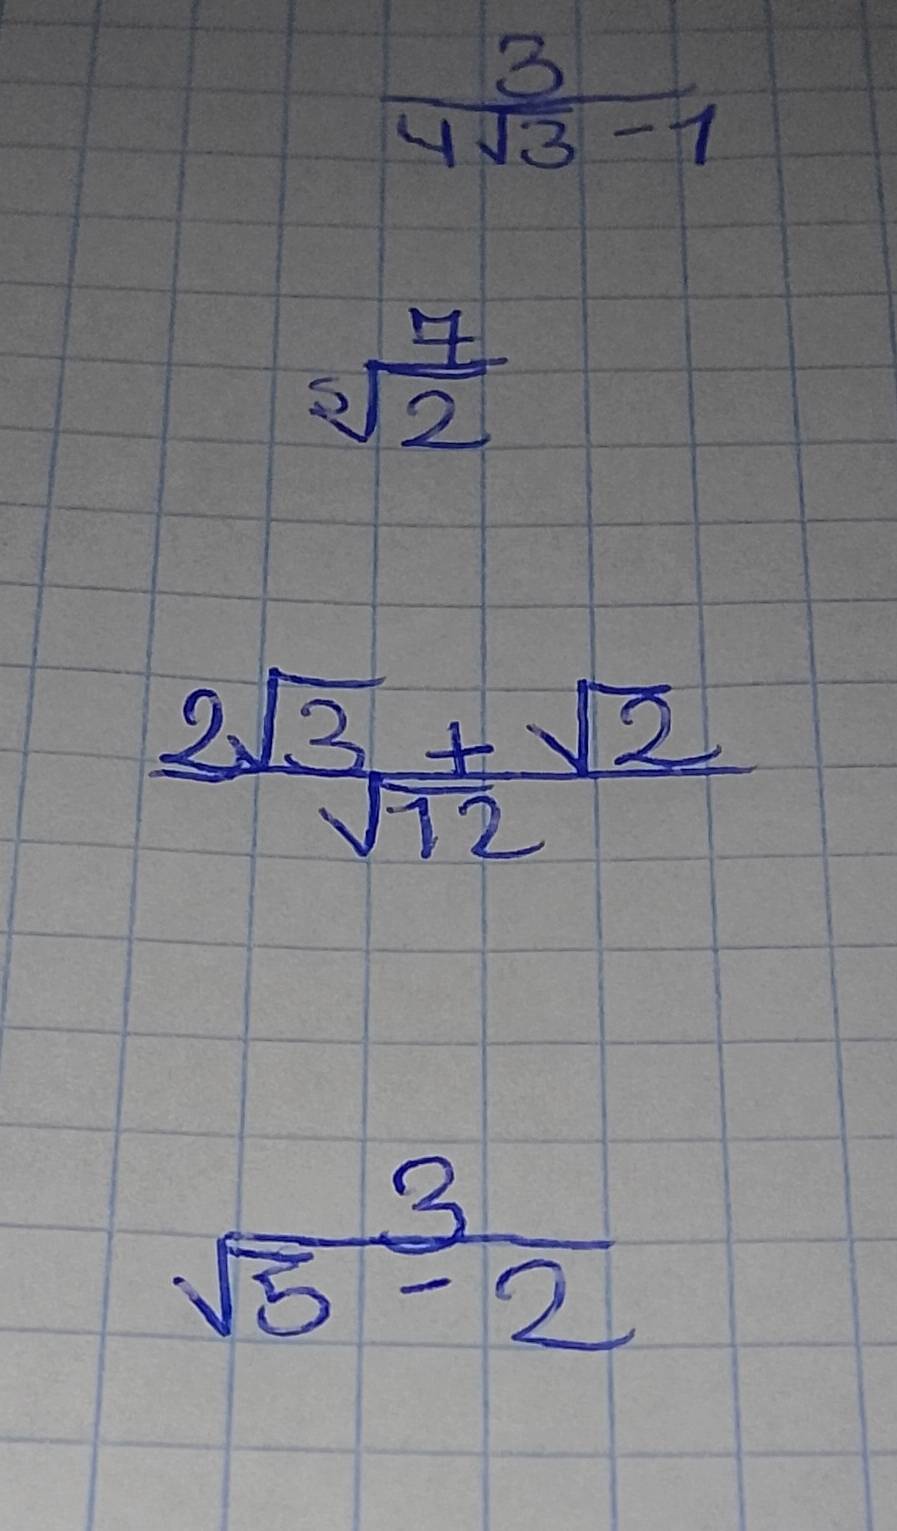 3
4√3 - 1
7
⁵√2
2√3 + √2
√12
3
√5 - 2